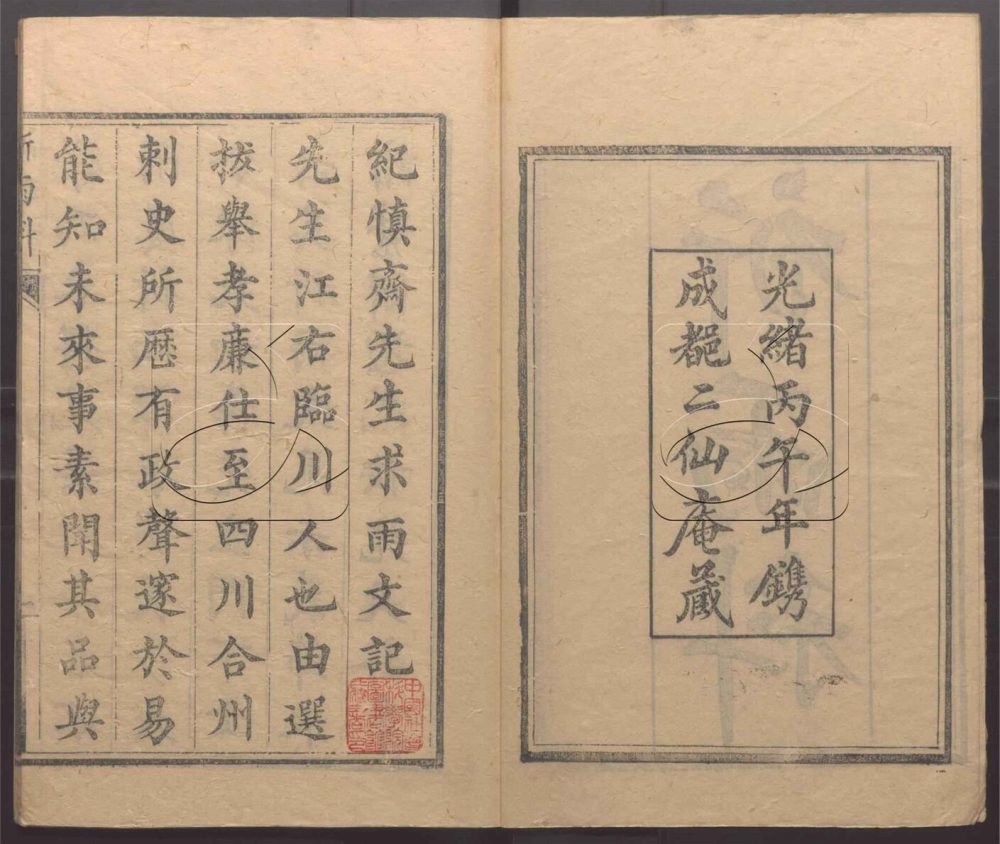 光緒丙午年鐫
成都二仙庵藏
紀慎齋先生求雨文記
先生江右臨川人也由選
拔舉孝廉仕至四川合州
刺史所歷有政聲邃於易
能知未來事素聞其品與
祈雨科